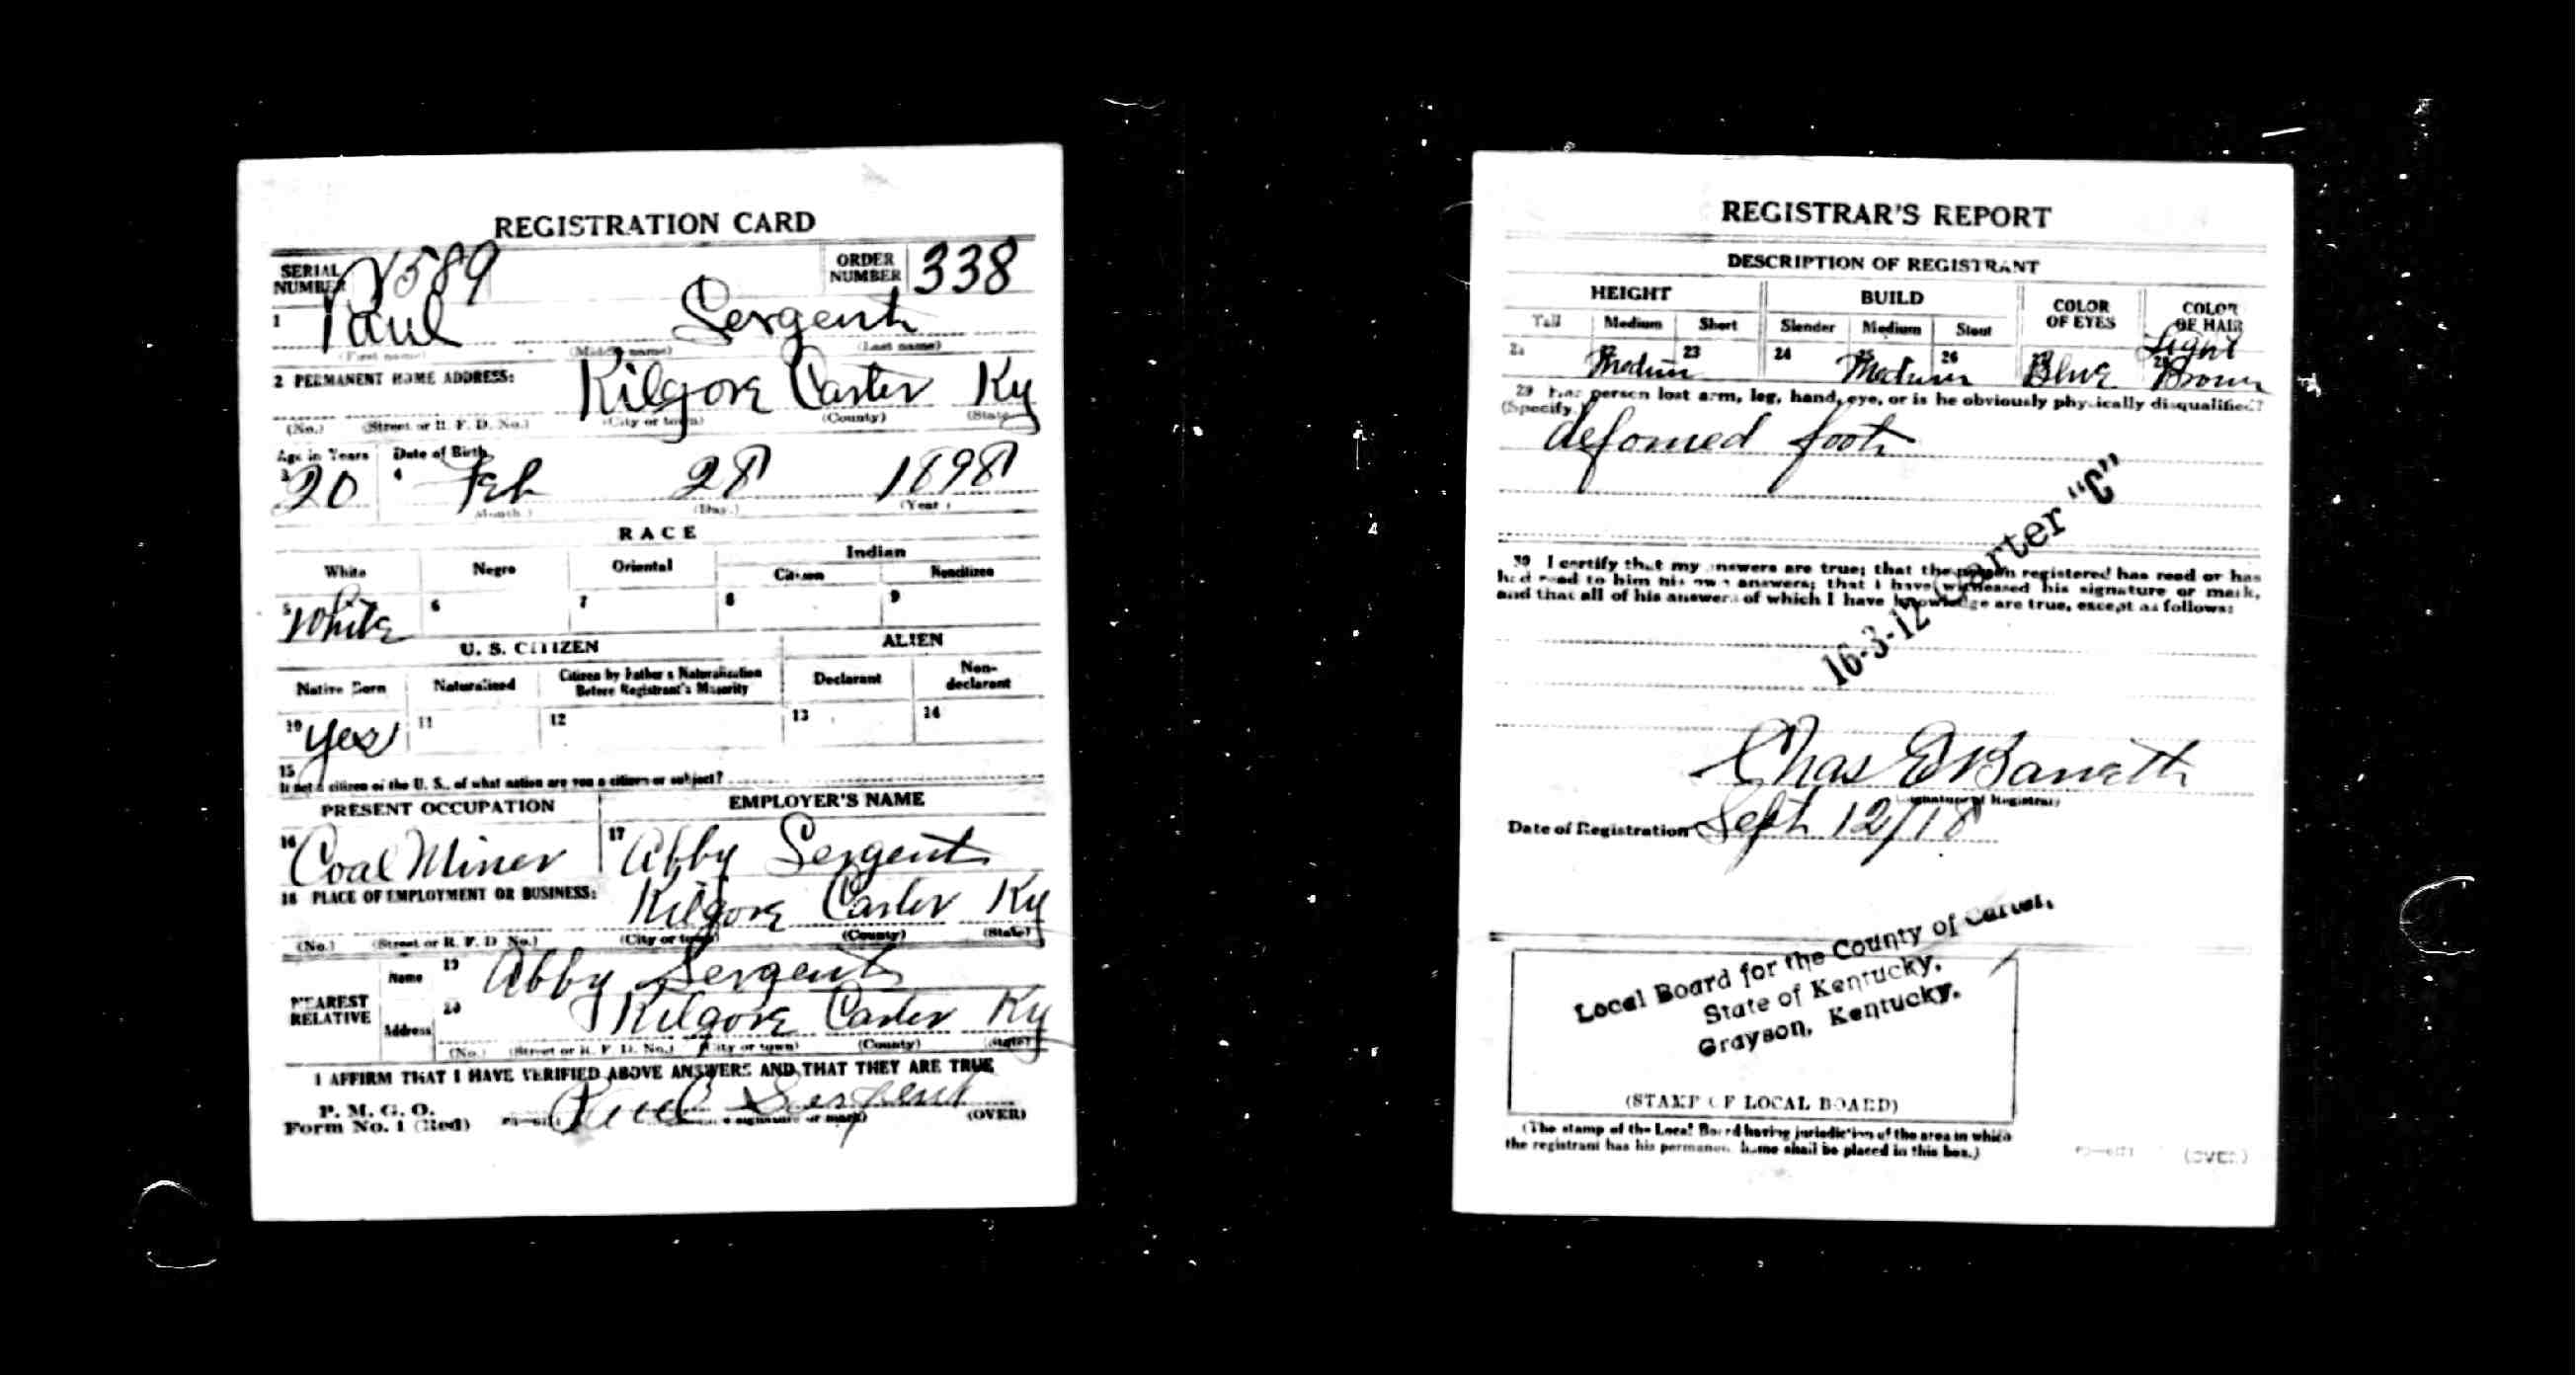 REGISTRATION CARD
SERIAL NUMBER 1589 ORDER NUMBER 338
1 Paul Sergent
(First name) (Middle name) (Last name)
2 PERMANENT HOME ADDRESS: Kilgore Carter Ky
(No.) (Street or R. F. D. No.) (City or town) (County) (State)
Age in Years Date of Birth
3 20 4 Feb 28 1898
(Month.) (Day.) (Year)
RACE
White Negro Oriental Indian
Citizen Noncitizen
5 White 6 7 8 9
U. S. CITIZEN ALIEN
Native Born Naturalized Citizen by Father's Naturalization Before Registrant's Majority Declarant Non-declarant
10 Yes 11 12 13 14
15 If not a citizen of the U. S., of what nation are you a citizen or subject?
PRESENT OCCUPATION EMPLOYER'S NAME
16 Coal Miner 17 Abby Sergent
18 PLACE OF EMPLOYMENT OR BUSINESS: Kilgore Carter Ky
(No.) (Street or R. F. D. No.) (City or town) (County) (State)
NEAREST RELATIVE Name 19 Abby Sergent
Address 20 Kilgore Carter Ky
(No.) (Street or R. F. D. No.) (City or town) (County) (State)
I AFFIRM THAT I HAVE VERIFIED ABOVE ANSWERS AND THAT THEY ARE TRUE
P. M. G. O.
Form No. 1 (Red) Paul Sergent (OVER)
REGISTRAR'S REPORT
DESCRIPTION OF REGISTRANT
HEIGHT BUILD COLOR OF EYES COLOR OF HAIR
Tall Medium Short Slender Medium Stout
21 22 Medium 23 24 25 Medium 26 27 Blue 28 Light Brown
29 Has person lost arm, leg, hand, eye, or is he obviously physically disqualified?
(Specify.)
defomed foot
30 I certify that my answers are true; that the person registered has read or has
had read to him his own answers; that I have witnessed his signature or mark,
and that all of his answers of which I have knowledge are true, except as follows:
16-3-12 Carter "C"
Chas E
(Signature of Registrar)
Date of Registration Sept 12/18
Local Board for the County of Carter,
State of Kentucky,
Grayson, Kentucky.
(STAMP OF LOCAL BOARD)
(The stamp of the Local Board having jurisdiction of the area in which
the registrant has his permanent home shall be placed in this box.)
(OVER)